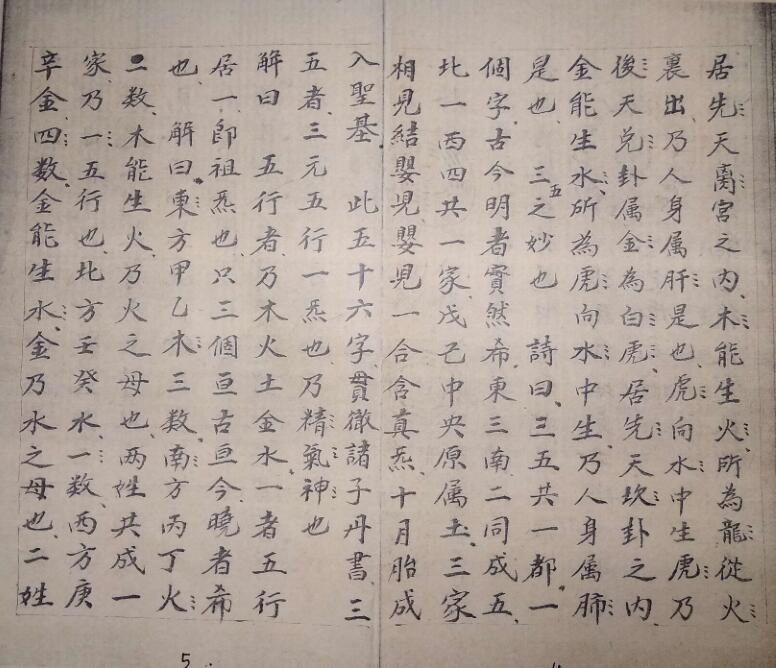 居先天离宮之內木能生火所為龍從火
裏出乃人身属肝是也虎向水中生虎乃
後天兌卦属金為白虎居先天坎卦之內
金能生水所為虎向水中生乃人身属肺
是也 三五之妙也 詩曰三五共一都一
個字古今明者實然希東三南二同成五
北一西四共一家戊己中央原属土三家
相見結嬰児嬰児一合含真炁十月胎成
入聖基 此五十六字貫徹諸子丹書三
五者三元五行一炁也乃精氣神也
解曰 五行者乃木火土金水一者五行
居一即祖炁也只三個亘古亘今曉者希
也 解曰東方甲乙木三数南方丙丁火
二数木能生火乃火之母也两姓共成一
家乃一五行也北方壬癸水一数西方庚
辛金四数金能生水金乃水之母也二姓
5